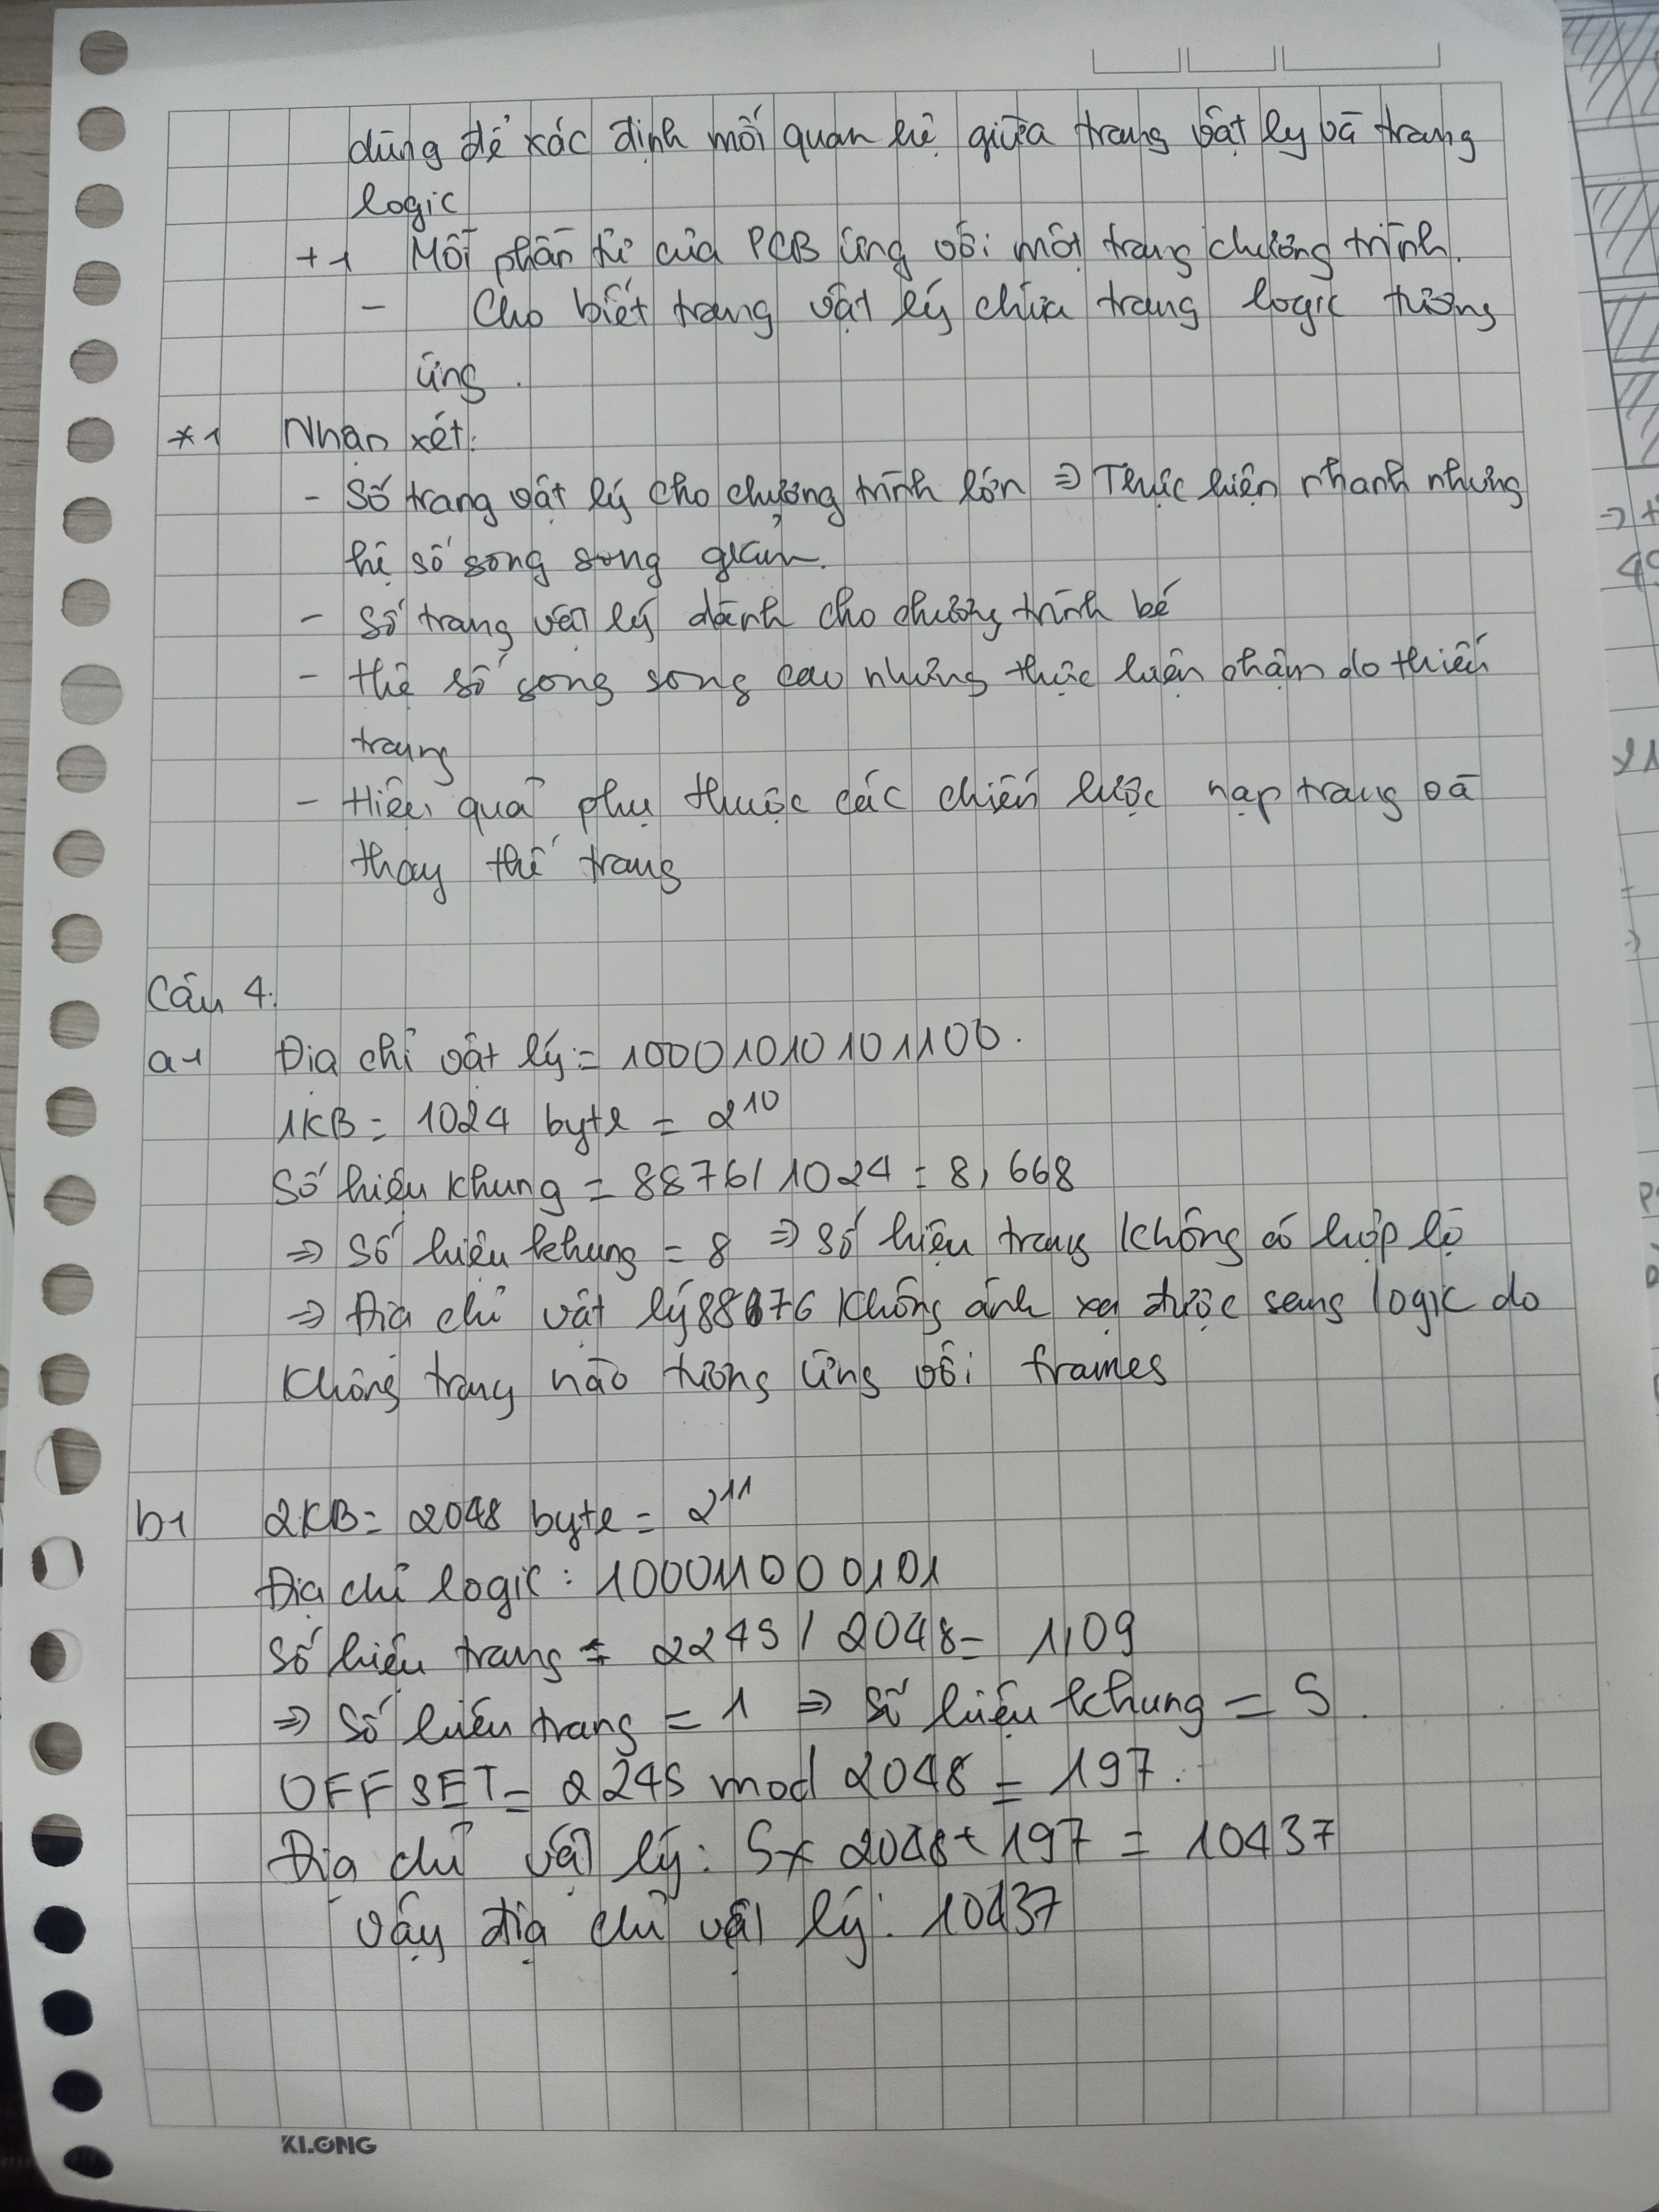 dùng để xác định mối quan hệ giữa trang vật lý và trang
logic
+1 Mỗi phần tử của PCB ứng với một trang chương trình.
- Cho biết trang vật lý chứa trang logic tương
ứng.
*1 Nhận xét:
- Số trang vật lý cho chương trình lớn => Thực hiện nhanh nhưng
hệ số song song giảm.
- Số trang vật lý dành cho chương trình bé
- Hệ số song song cao nhưng thực hiện chậm do thiếu
trang
- Hiệu quả phụ thuộc các chiến lược nạp trang và
thay thế trang
Câu 4:
a1 Địa chỉ vật lý = 10001010101100.
1KB = 1024 byte = 2^10
Số hiệu khung = 8876 / 1024 = 8,668
=> Số hiệu khung = 8 => Số hiệu trang không có hợp lệ
=> Địa chỉ vật lý 8876 không ánh xạ được sang logic do
không trang nào tương ứng với frames
b1 2KB = 2048 byte = 2^11
Địa chỉ logic: 100011000101
Số hiệu trang = 2245 / 2048 = 1,09
=> Số hiệu trang = 1 => Số hiệu khung = 5.
OFFSET = 2245 mod 2048 = 197.
Địa chỉ vật lý: 5x 2048 + 197 = 10437
Vậy địa chỉ vật lý: 10437
KLONG